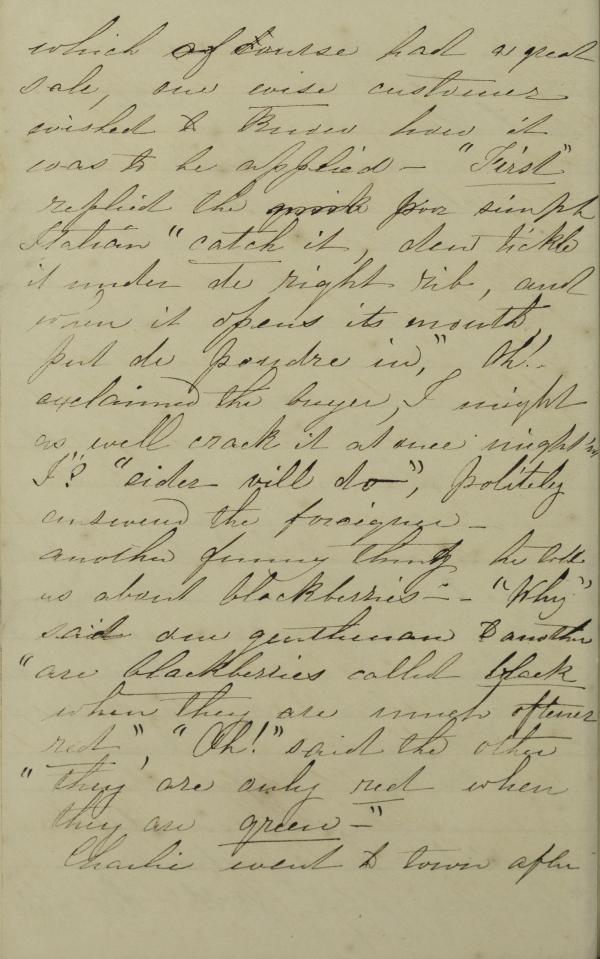 which of course had a great
sale, one wise customer
wished to know how it
was to be applied — "First"
replied the poor simple
Italian "catch it, den tickle
it under de right rib, and
when it opens its mouth,
put de poudre in," Oh!
exclaimed the buyer, I might
as well crack it at once mightn't
I"? "eider vill do", politely
answered the foreigner —
another funny thing he told
us about blackberries — "Why"
said one gentleman to another
"are blackberries called black
when they are much oftener
red", "Oh!" said the other
"they are only red when
they are green —"
Charlie went to town after